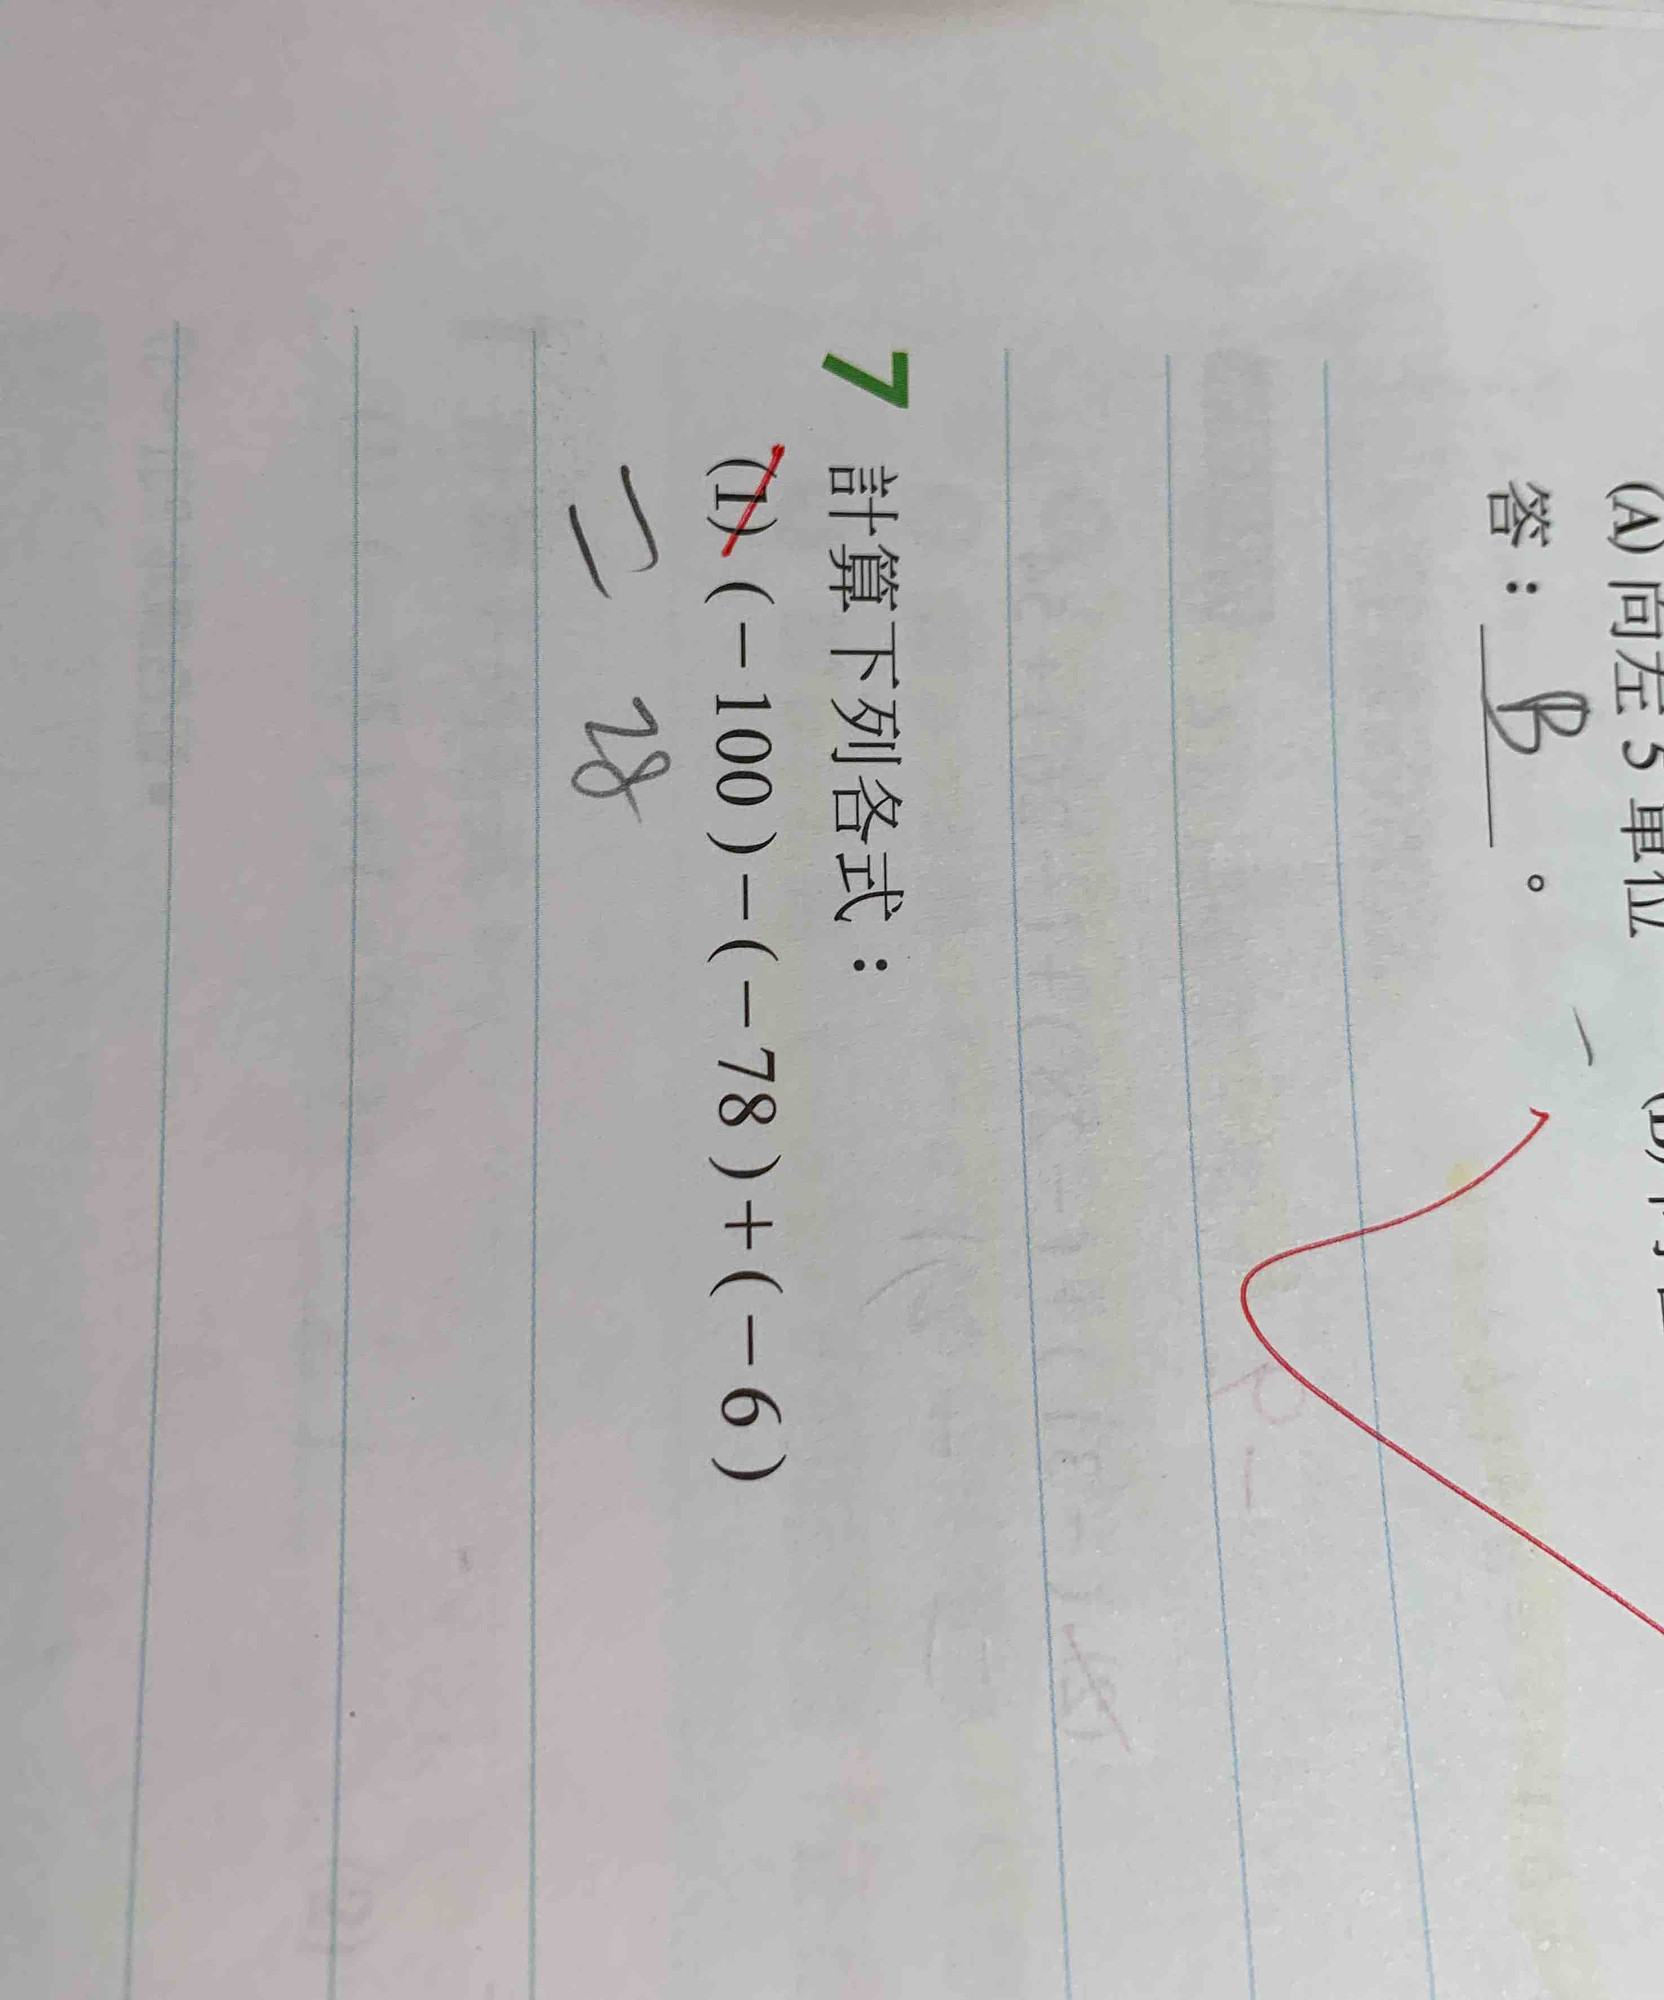 (A) 向左 5 單位
答：B。
7 計算下列各式：
(1) (－100)－(－78)＋(－6)
= 28